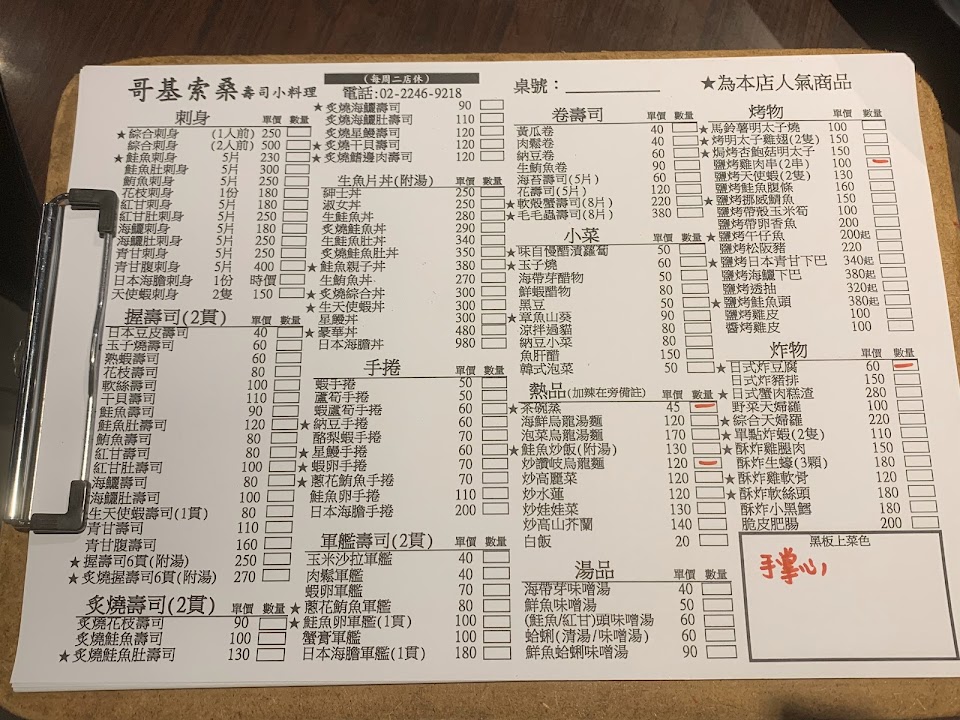 哥基索桑 壽司小料理
(每周二店休)
電話:02-2246-9218
桌號：
★為本店人氣商品
刺身 單價 數量
★綜合刺身 (1人前) 250
綜合刺身 (2人前) 500
★鮭魚刺身 5片 230
鮭魚肚刺身 5片 300
鮪魚刺身 5片 250
花枝刺身 1份 180
紅甘刺身 5片 180
紅甘肚刺身 5片 250
海鱺刺身 5片 180
海鱺肚刺身 5片 250
青甘刺身 5片 250
青甘腹刺身 5片 400
日本海膽刺身 1份 時價
天使蝦刺身 2隻 150
握壽司(2貫) 單價 數量
日本豆皮壽司 40
玉子燒壽司 60
熟蝦壽司 60
花枝壽司 80
軟絲壽司 100
干貝壽司 110
鮭魚壽司 90
鮭魚肚壽司 120
鮪魚壽司 80
紅甘壽司 80
紅甘肚壽司 100
海鱺壽司 80
海鱺肚壽司 100
生天使蝦壽司(1貫) 80
青甘壽司 110
青甘腹壽司 160
★握壽司6貫(附湯) 250
★炙燒握壽司6貫(附湯) 270
炙燒壽司(2貫) 單價 數量
炙燒花枝壽司 90
炙燒鮭魚壽司 100
★炙燒鮭魚肚壽司 130
★炙燒海鱺壽司 90
炙燒海鱺肚壽司 110
炙燒星鰻壽司 120
★炙燒干貝壽司 120
炙燒鰭邊肉壽司 120
生魚片丼(附湯) 單價 數量
紳士丼 250
淑女丼 250
生鮭魚丼 280
炙燒鮭魚丼 290
生鮭魚肚丼 340
炙燒鮭魚肚丼 350
★鮭魚親子丼 380
生鮪魚丼 300
★炙燒綜合丼 300
★生天使蝦丼 300
星鰻丼 300
★豪華丼 480
日本海膽丼 980
手捲 單價 數量
蝦手捲 50
蘆筍手捲 50
蝦蘆筍手捲 60
★納豆手捲 60
酪梨蝦手捲 60
★星鰻手捲 60
★蝦卵手捲 70
★蔥花鮪魚手捲 70
鮭魚卵手捲 110
日本海膽手捲 200
軍艦壽司(2貫) 單價 數量
玉米沙拉軍艦 40
肉鬆軍艦 40
蝦卵軍艦 70
★蔥花鮪魚軍艦 80
★鮭魚卵軍艦(1貫) 100
蟹膏軍艦 100
日本海膽軍艦(1貫) 180
卷壽司 單價 數量
黃瓜卷 40
肉鬆卷 40
納豆卷 60
生鮪魚卷 90
海苔壽司(5片) 60
花壽司(5片) 120
★軟殼蟹壽司(8片) 220
★毛毛蟲壽司(8片) 380
小菜 單價 數量
★味自慢醋漬蘿蔔 50
★玉子燒 60
海帶芽醋物 60
鮮蝦醋物 80
黑豆 50
★章魚山葵 90
涼拌過貓 80
納豆小菜 80
魚肝醋 150
韓式泡菜 50
熱品(加辣在旁備註) 單價 數量
★茶碗蒸 45
海鮮烏龍湯麵 120
泡菜烏龍湯麵 170
★鮭魚炒飯(附湯) 130
炒讚岐烏龍麵 120
炒高麗菜 120
炒水蓮 120
炒娃娃菜 130
炒高山芥蘭 140
白飯 20
湯品 單價 數量
海帶芽味噌湯 40
鮮魚味噌湯 50
(鮭魚/紅甘)頭味噌湯 60
蛤蜊(清湯/味噌湯) 60
鮮魚蛤蜊味噌湯 90
烤物 單價 數量
★馬鈴薯明太子燒 100
★烤明太子雞翅(2隻) 150
★焗烤杏鮑菇明太子 150
鹽烤雞肉串(2串) 100
鹽烤天使蝦(2隻) 130
鹽烤鮭魚腹條 160
★鹽烤挪威鯖魚 150
鹽烤帶殼玉米筍 100
鹽烤帶卵香魚 200
★鹽烤午仔魚 200起
鹽烤松阪豬 220
★鹽烤日本青甘下巴 340起
鹽烤海鱺下巴 380起
鹽烤透抽 320起
★鹽烤鮭魚頭 380起
鹽烤雞皮 100
醬烤雞皮 100
炸物 單價 數量
★日式炸豆腐 60
日式炸豬排 150
★日式蟹肉糕渣 280
野菜天婦羅 100
★綜合天婦羅 220
★單點炸蝦(2隻) 110
★酥炸雞腿肉 150
酥炸生蠔(3顆) 180
★酥炸雞軟骨 120
★酥炸軟絲頭 180
酥炸小黑鱈 180
脆皮肥腸 200
黑板上菜色
手掌心